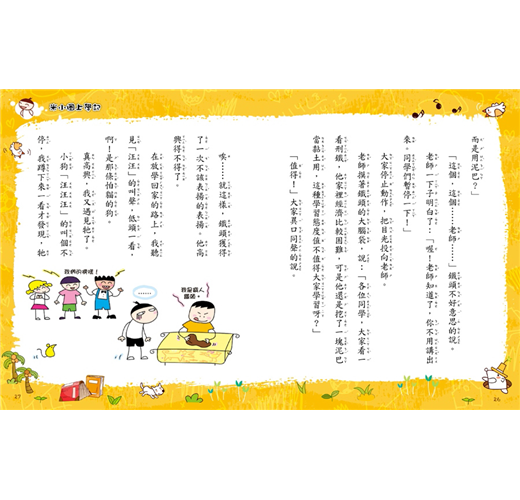 而是用泥巴？
「這個，這個……老師……」鐵頭不好意思的說。
老師一下子明白了：「喔！老師知道了，你不用講出
來。同學們暫停一下！」
大家停止動作，把目光投向老師。
老師摸著鐵頭的大腦袋，說：「各位同學，大家看一
看刑鐵，他家裡經濟比較困難，可是他還是挖了一塊泥巴
當黏土用，這種學習態度值不值得大家學習呀？」
「值得！」大家異口同聲的說。
26
米小圈上學記
唉……就這樣，鐵頭獲得
了一次不該表揚的表揚。他高
興得不得了。
在放學回家的路上，我聽
見「汪汪」的叫聲，低頭一看，
啊！是那條怕貓的狗。
真高興，我又遇見牠了。
小狗「汪汪汪」的叫個不
停，我蹲下來一看才發現，牠
我們的榜樣！
……
我是病人
鐵頭。
27